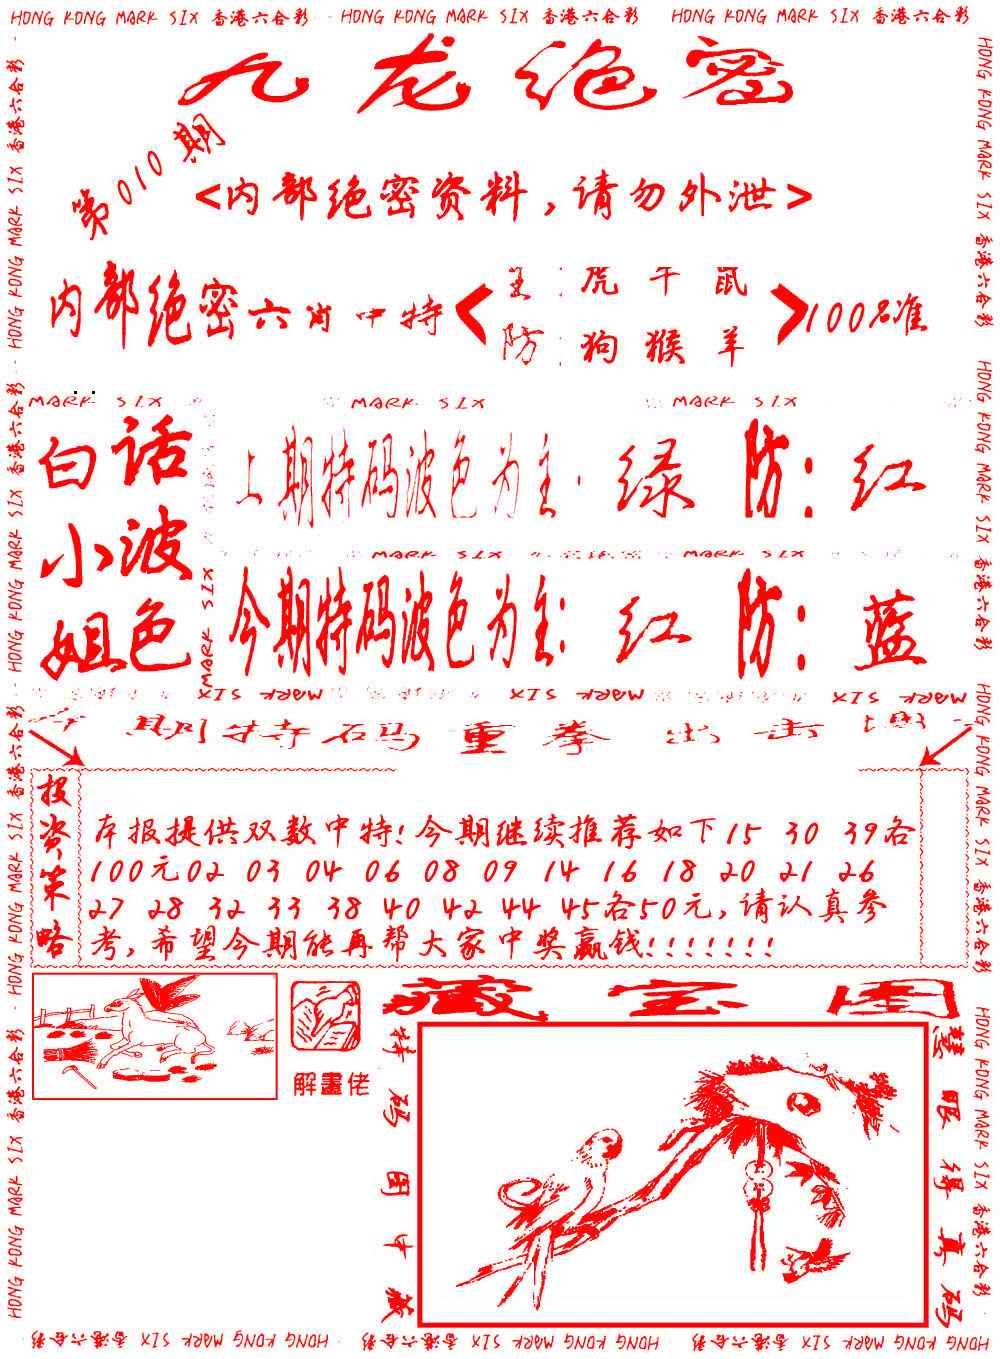 HONG KONG MARK SIX 香港六合彩 HONG KONG MARK SIX 香港六合彩 HONG KONG MARK SIX 香港六合彩
九龙绝密
第010期
<内部绝密资料,请勿外泄>
内部绝密六肖中特
主:虎牛鼠
防:狗猴羊
100%准
MARK SIX MARK SIX MARK SIX
白话
小波
姐色
上期特码波色为主:绿 防:红
MARK SIX MARK SIX
今期特码波色为主:红 防:蓝
MARK SIX
MARK SIX MARK SIX MARK SIX
今期特码重拳出击
投资策略
本报提供双数中特!今期继续推荐如下15 30 39各
100元02 03 04 06 08 09 14 16 18 20 21 26
27 28 32 33 38 40 42 44 45各50元,请认真参
考,希望今期能再帮大家中奖赢钱!!!!!!!
解畫佬
藏宝图
特码图中藏
慧眼得真码
HONG KONG MARK SIX 香港六合彩 HONG KONG MARK SIX 香港六合彩 HONG KONG MARK SIX 香港六合彩